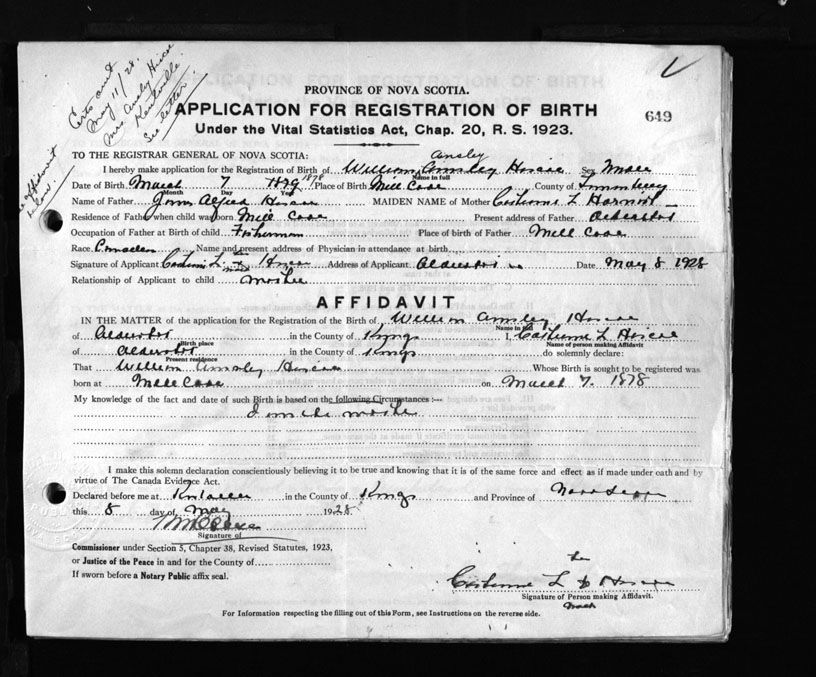 Certs sent
May 11/28.
Mrs Ansly Hiscoe
Kentville
See letter
affidavit
below.
PROVINCE OF NOVA SCOTIA.
APPLICATION FOR REGISTRATION OF BIRTH
649
Under the Vital Statistics Act, Chap. 20, R. S. 1923.
TO THE REGISTRAR GENERAL OF NOVA SCOTIA:
Ansley
I hereby make application for the Registration of Birth of William Hiscoe Sex Male
Name in full
Date of Birth March 7 1878 Place of Birth Mill Cove County of
Month Day Year
Name of Father John Alfred Hiscoe MAIDEN NAME of Mother L
Residence of Father when child was born Mill Cove Present address of Father
Occupation of Father at Birth of child Fisherman Place of birth of Father Mill Cove
Race Canadian Name and present address of Physician in attendance at birth
Signature of Applicant L. Hiscoe Address of Applicant Date May 8 1928
Relationship of Applicant to child Mother
AFFIDAVIT
IN THE MATTER of the application for the Registration of the Birth of William Hiscoe
Name in full
of in the County of Kings I, L Hiscoe
Birth place Name of person making Affidavit
of in the County of Kings do solemnly declare:
Present residence
That William Hiscoe Whose Birth is sought to be registered was
born at Mill Cove on March 7. 1878
My knowledge of the fact and date of such Birth is based on the following Circumstances :—
I am the mother
I make this solemn declaration conscientiously believing it to be true and knowing that it is of the same force and effect as if made under oath and by
virtue of The Canada Evidence Act.
Declared before me at Kentville in the County of Kings and Province of Nova Scotia
this 8 day of May 1928
Signature of
Commissioner under Section 5, Chapter 38, Revised Statutes, 1923,
or Justice of the Peace in and for the County of
If sworn before a Notary Public affix seal.
her
L X Hiscoe
Signature of Person making Affidavit.
mark
For Information respecting the filling out of this Form, see Instructions on the reverse side.